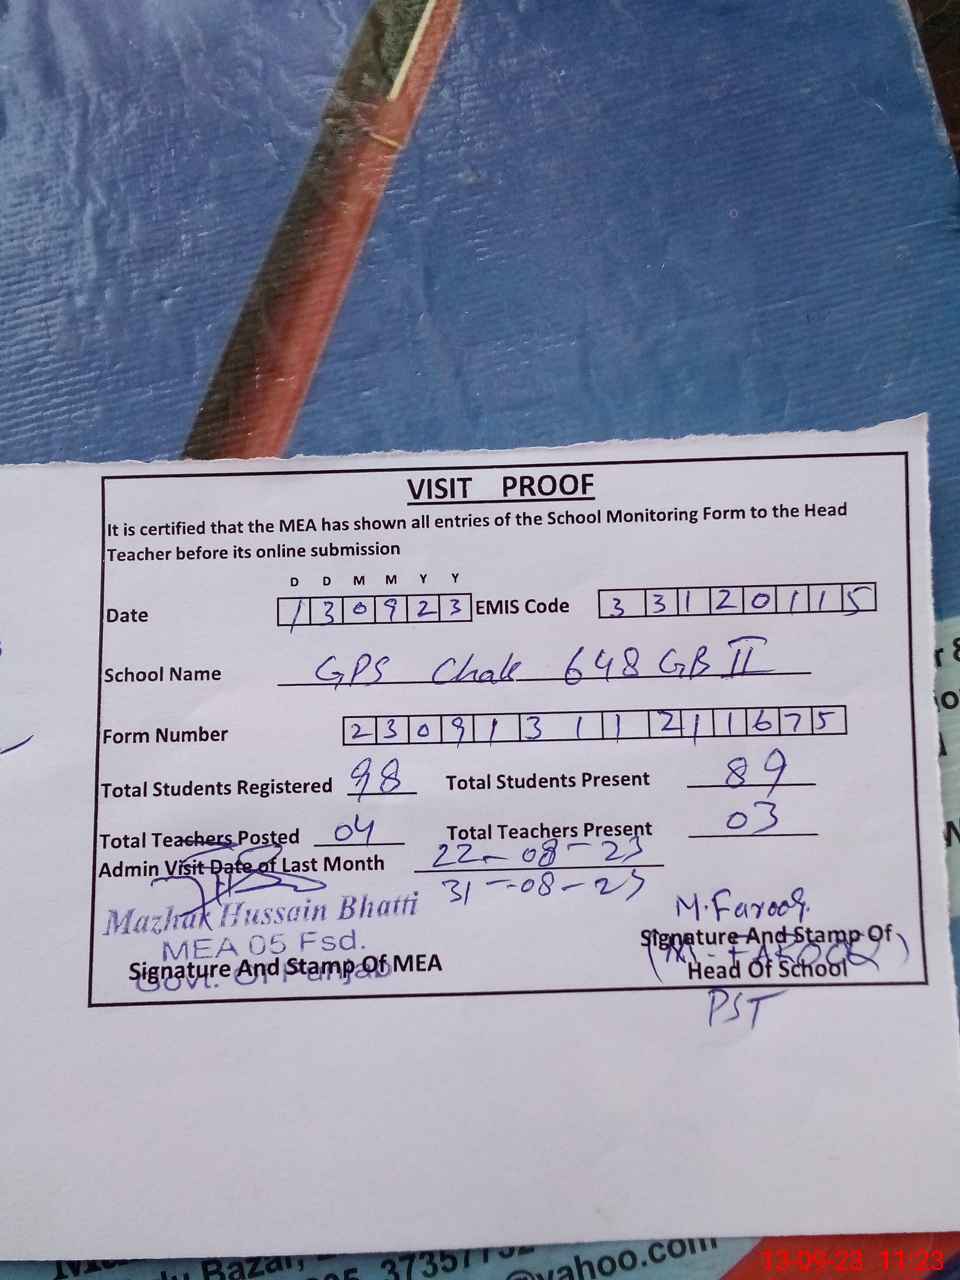 VISIT PROOF
It is certified that the MEA has shown all entries of the School Monitoring Form to the Head
Teacher before its online submission
D D M M Y Y
Date 130923 EMIS Code 33120115
School Name GPS Chak 648 GB II
Form Number 2309131121 1675
Total Students Registered 98 Total Students Present 89
Total Teachers Posted 04 Total Teachers Present 03
Admin Visit Date of Last Month 22-08-23
31-08-23
Mazhar Hussain Bhatti
MEA 05 Fsd.
Govt. Of Punjab
Signature And Stamp Of MEA
M. Farooq.
Signature And Stamp Of
(M. FAROOQ)
Head Of School
PST
Bazar,
@yahoo.com
13-09-23 11:23